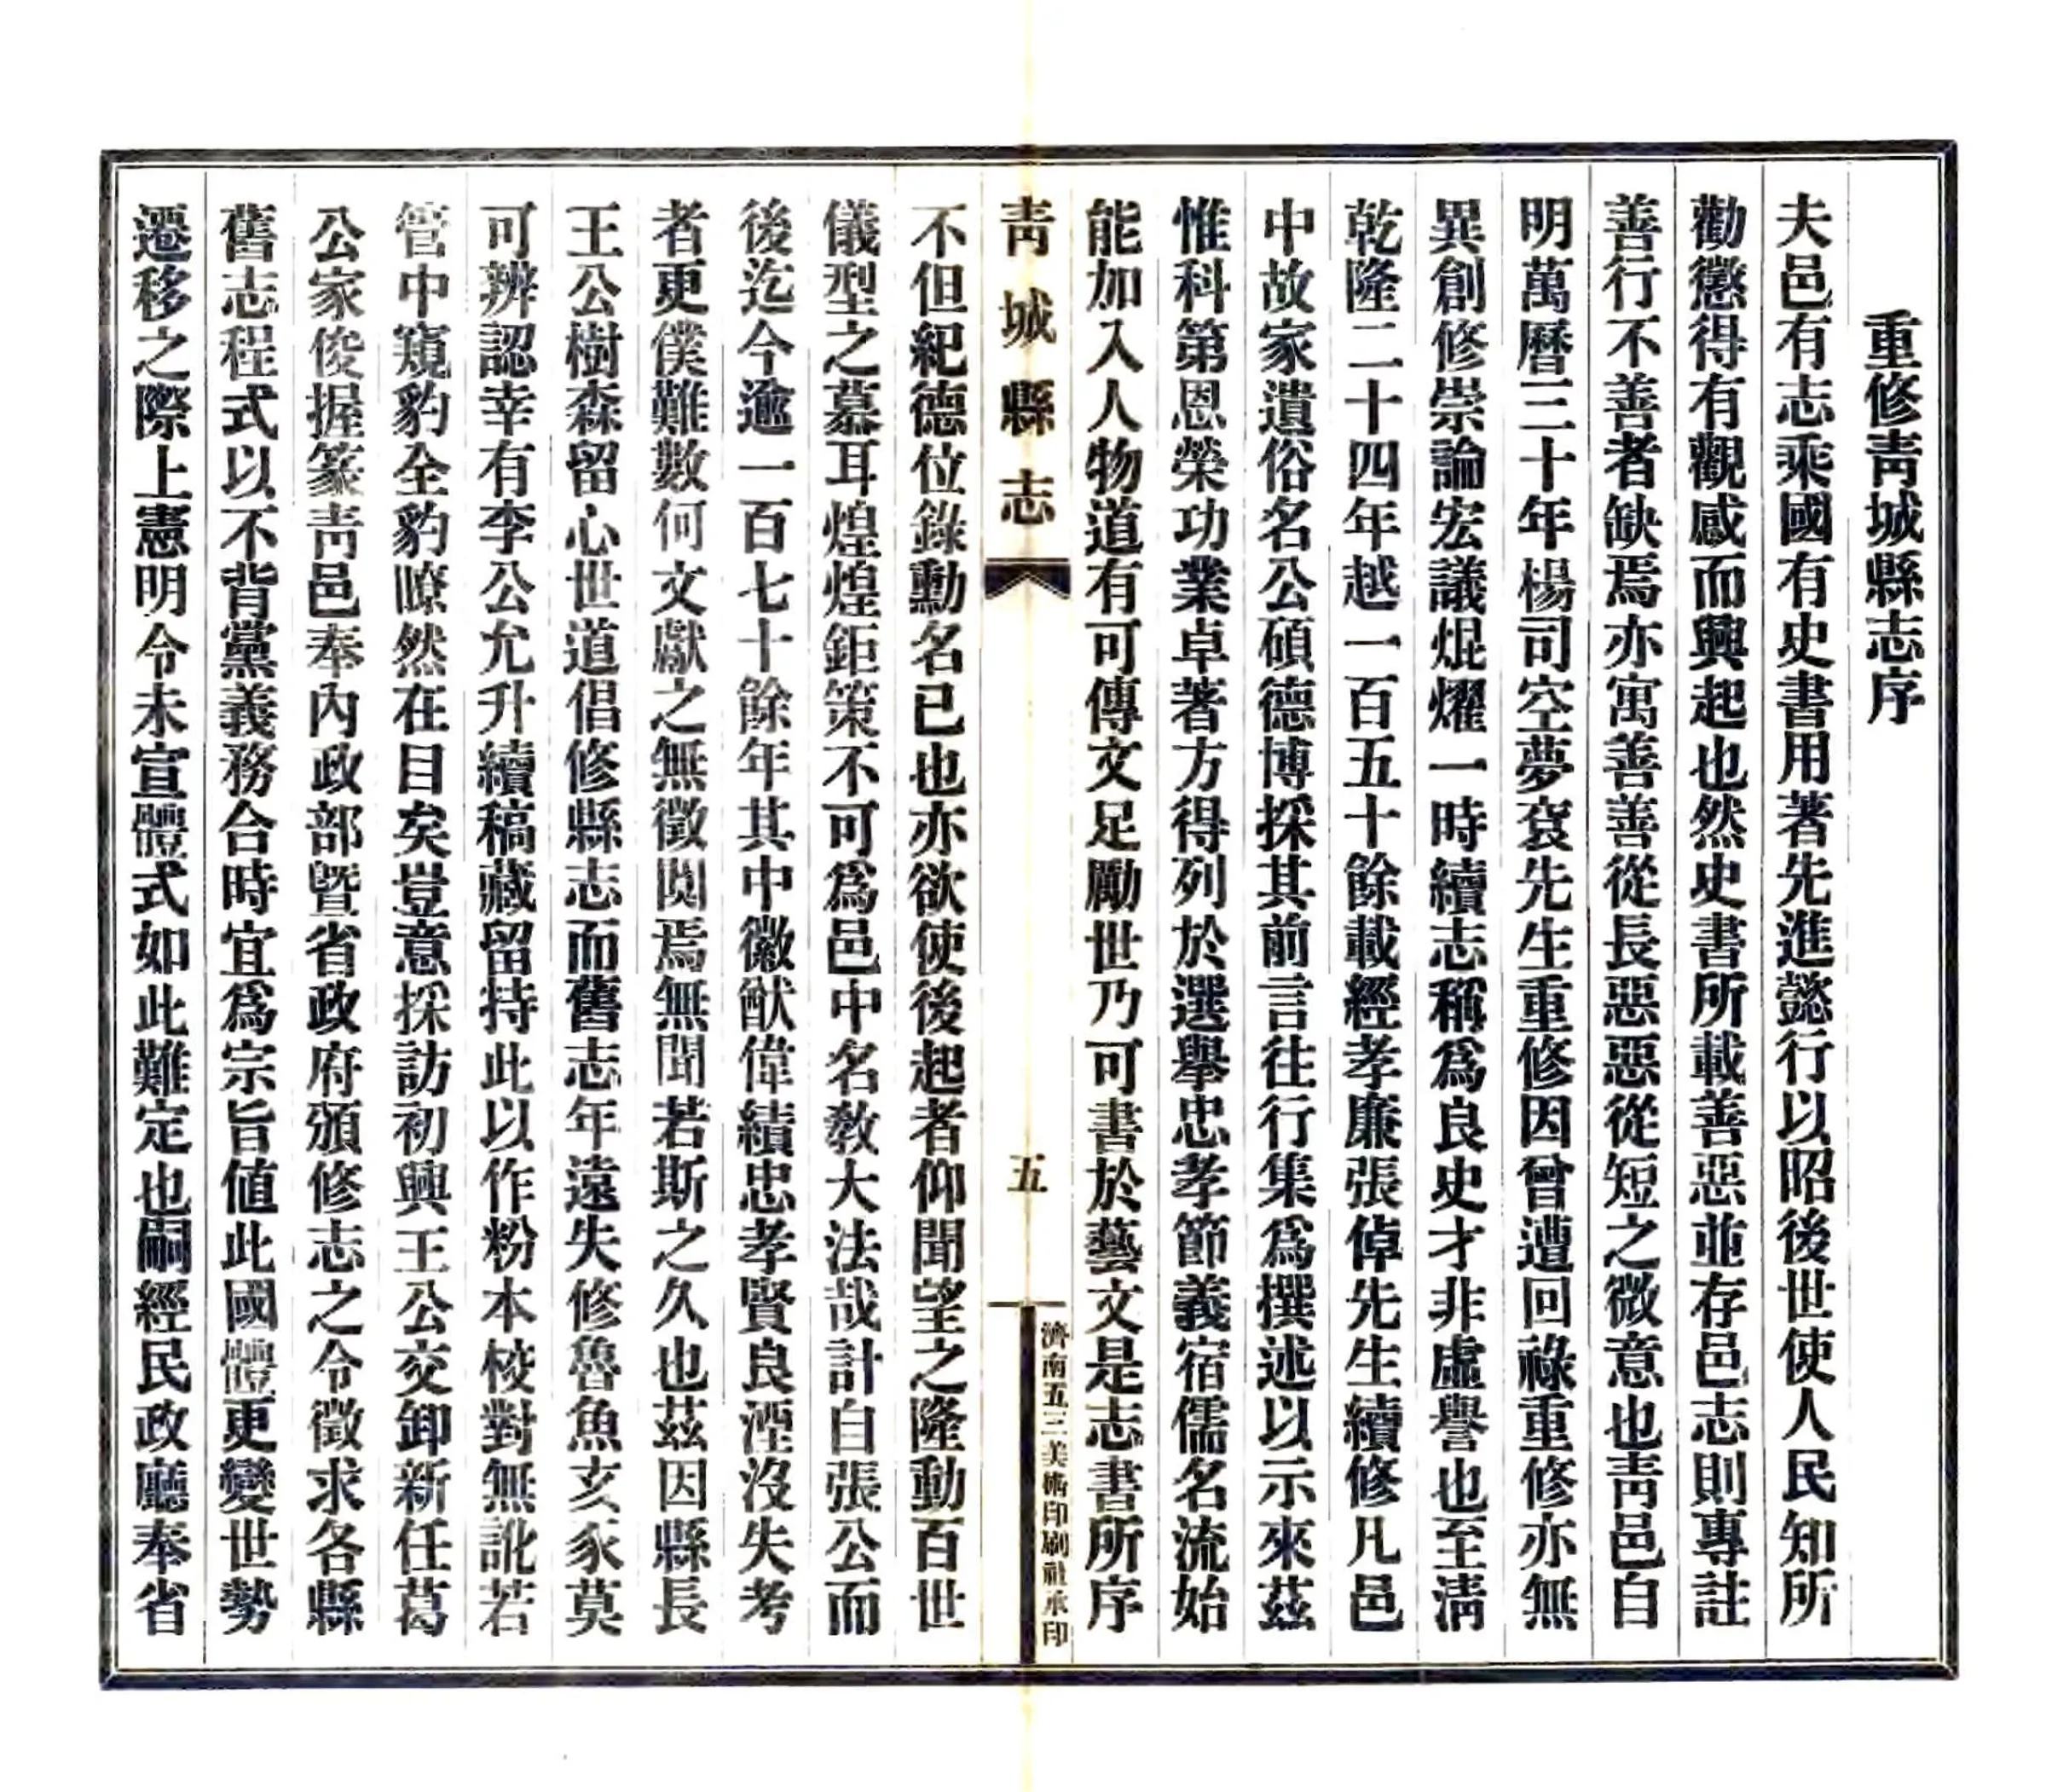 重修靑城縣志序
夫邑有志乘國有史書用著先進懿行以昭後世使人民知所
勸懲得有觀感而興起也然史書所載善惡並存邑志則專註
善行不善者缺焉亦寓善善從長惡惡從短之微意也靑邑自
明萬曆三十年楊司空夢袞先生重修因曾遭回祿重修亦無
異創修崇論宏議焜燿一時續志稱爲良史才非虛譽也至淸
乾隆二十四年越一百五十餘載經孝廉張倬先生續修凡邑
中故家遺俗名公碩德博採其前言往行集爲撰述以示來茲
惟科第恩榮功業卓著方得列於選舉忠孝節義宿儒名流始
能加入人物道有可傳文足勵世乃可書於藝文是志書所序
靑城縣志
五
濟南五三美術印刷社承印
不但紀德位錄勳名已也亦欲使後起者仰聞望之隆動百世
儀型之慕耳煌煌鉅策不可爲邑中名教大法哉計自張公而
後迄今逾一百七十餘年其中徽猷偉績忠孝賢良湮沒失考
者更僕難數何文獻之無徵闃焉無聞若斯之久也茲因縣長
王公樹森留心世道倡修縣志而舊志年遠失修魯魚亥豕莫
可辨認幸有李公允升續稿藏留持此以作粉本校對無訛若
管中窺豹全豹瞭然在目矣豈意採訪初興王公交卸新任葛
公家俊握篆靑邑奉內政部暨省政府頒修志之令徵求各縣
舊志程式以不背黨義務合時宜爲宗旨値此國體更變世勢
遷移之際上憲明令未宣體式如此難定也嗣經民政廳奉省